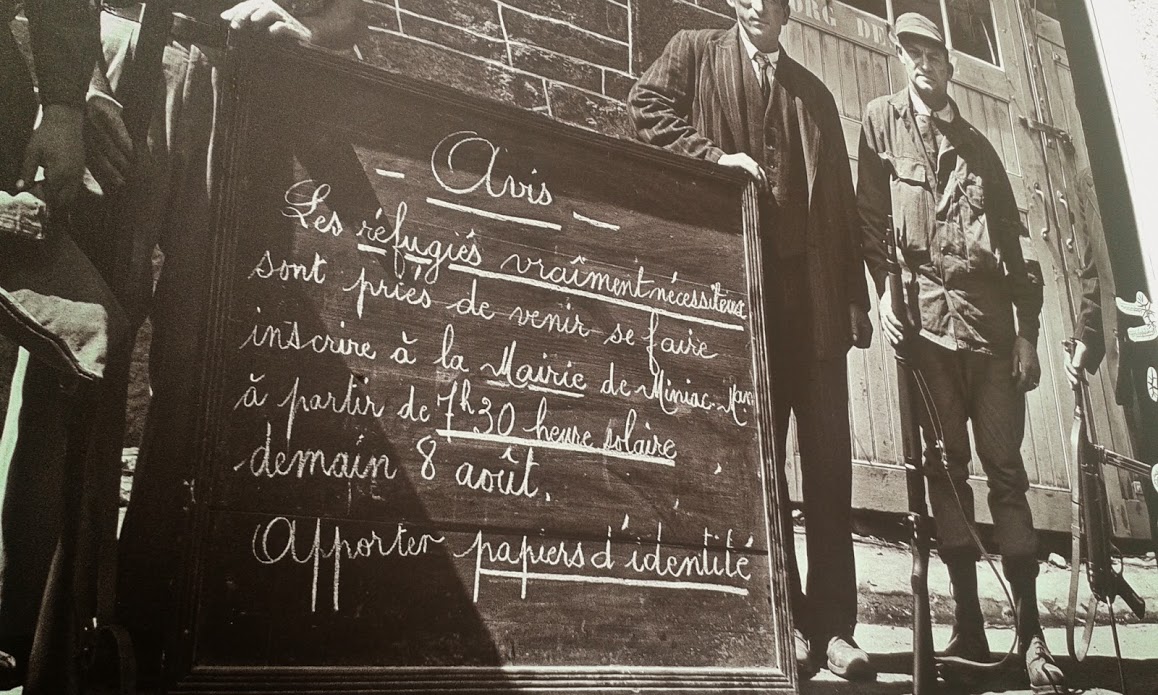 - Avis -
Les réfugiés vraîment nécessiteux
sont priés de venir se faire
inscrire à la Mairie de Miniac-Man
à partir de 7h30 heure solaire
demain 8 août.
Apporter papiers d'identité